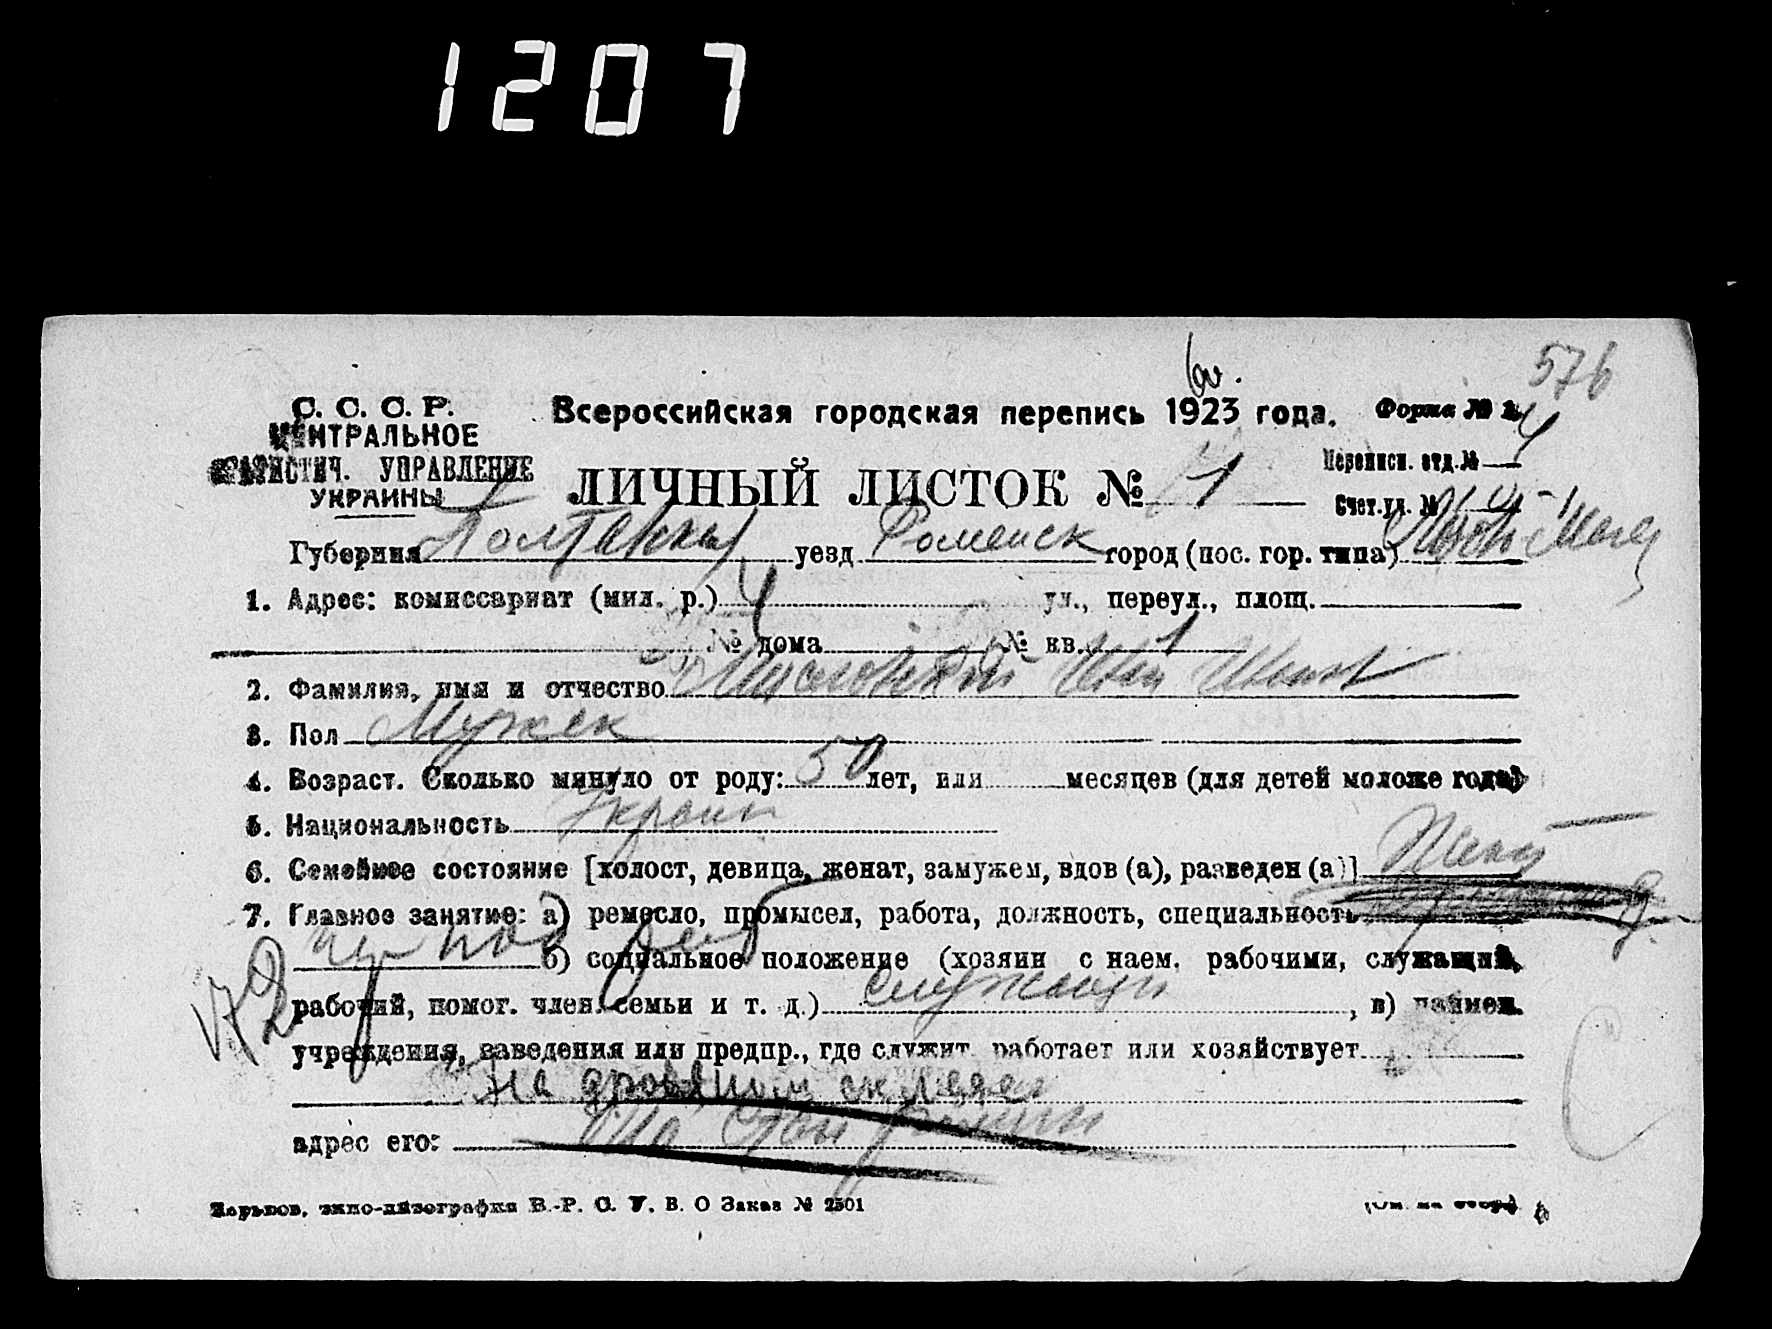 1207
576
С. С. С. Р.
ЦЕНТРАЛЬНОЕ
СТАТИСТИЧ. УПРАВЛЕНИЕ
УКРАИНЫ
Всероссийская городская перепись 1923 года.
Форма № 2
ЛИЧНЫЙ ЛИСТОК № 1
Переписн. отд. № 4
Счет. уч. №
Губерния Полтавск уезд Роменск город (пос. гор. типа)
1. Адрес: комиссариат (мил. р.) 4 ул., переул., площ.
№ дома № кв. 1
2. Фамилия, имя и отчество Иван
3. Пол Мужск
4. Возраст. Сколько минуло от роду: 50 лет, или месяцев (для детей моложе года)
5. Национальность Украин
6. Семейное состояние [холост, девица, женат, замужем, вдов (а), разведен (а)] Женат
7. Главное занятие: а) ремесло, промысел, работа, должность, специальность
б) социальное положение (хозяин с наем. рабочими, служащий,
рабочий, помог. член. семьи и т. д.) служащий, в) наимен.
учреждения, заведения или предпр., где служит, работает или хозяйствует
на дровяном складе
адрес его: Ромны
Харьков, типо-литография В.-Р. С. У. В. О Заказ № 2501